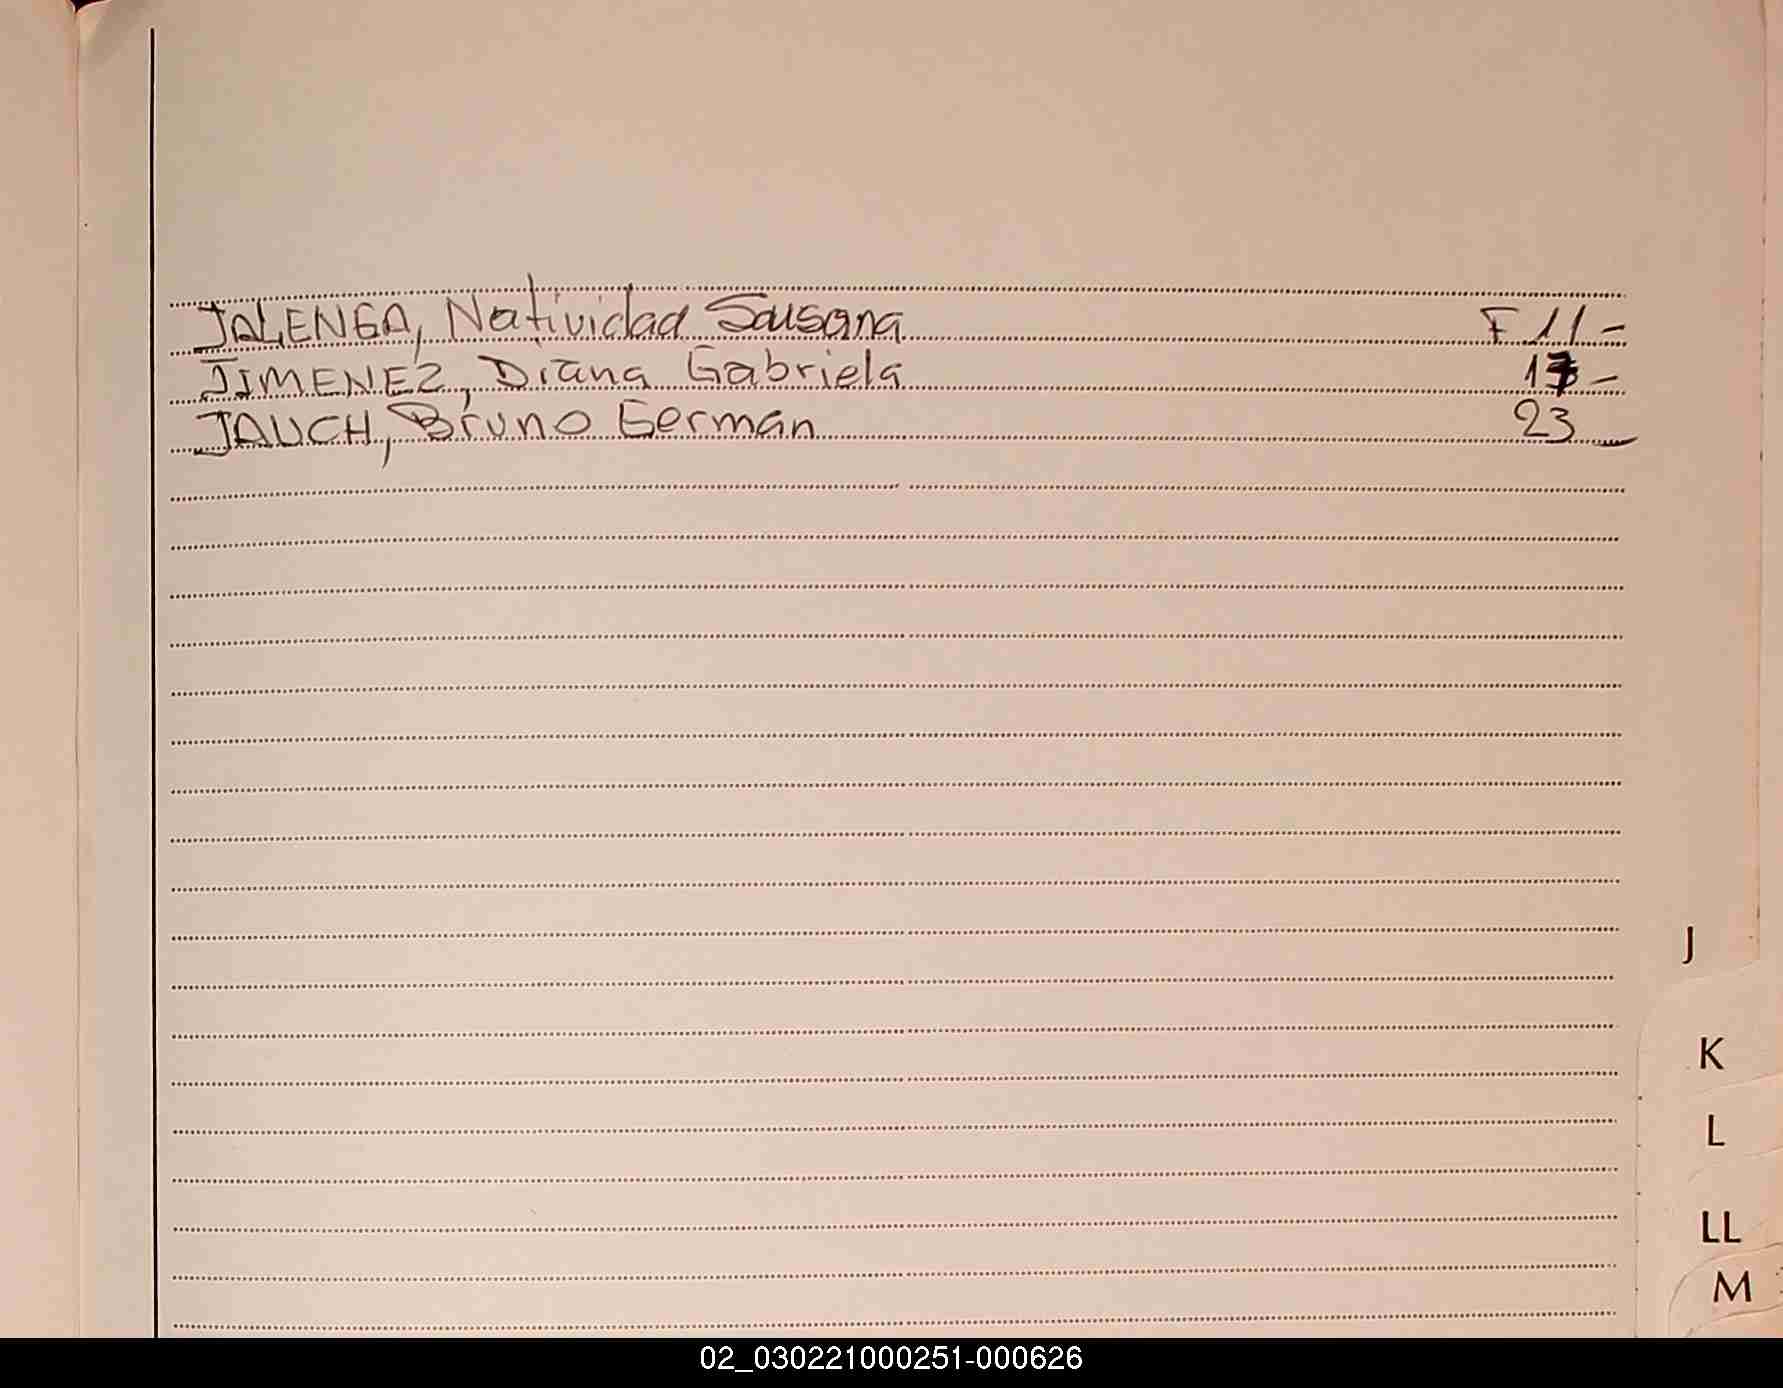 JALENGA, Natividad Sausana F 11 -
JIMENEZ, Diana Gabriela 17 -
JAUCH, Bruno German 23
J
K
L
LL
M
02_030221000251-000626